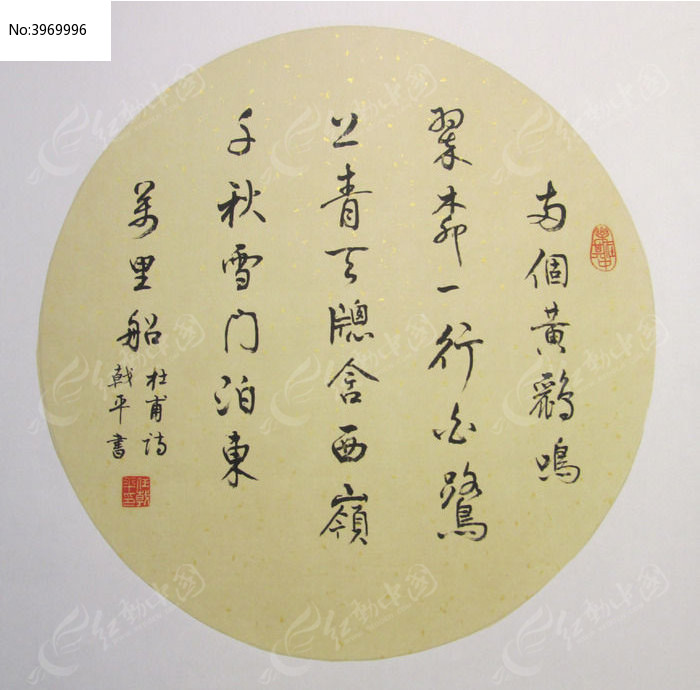 No:3969996
兩個黃鸝鳴
翠柳一行白鷺
上青天牕含西嶺
千秋雪門泊東
萬里船
杜甫詩
戟平書
红动中国